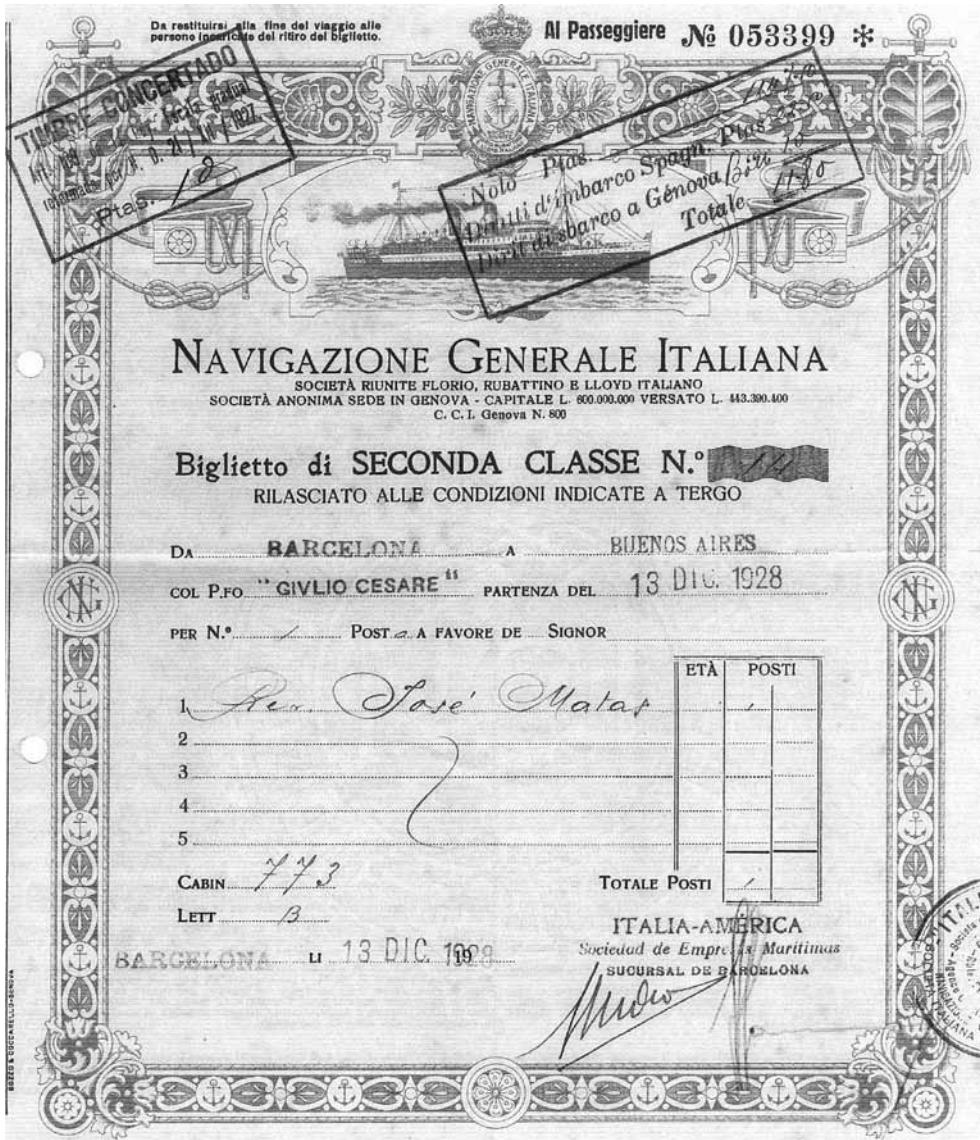 Da restituirsi alla fine del viaggio alle
persone incaricate del ritiro del biglietto.
Al Passeggiere No 053399 *
TIMBRE CONCERTADO
Ptas. 18
NAVIGAZIONE GENERALE ITALIANA
Nolo Ptas.
Diritti d'imbarco Spagn. Ptas.
Dirit di sbarco a Génova
Totale
NAVIGAZIONE GENERALE ITALIANA
SOCIETÀ RIUNITE FLORIO, RUBATTINO E LLOYD ITALIANO
SOCIETÀ ANONIMA SEDE IN GENOVA - CAPITALE L. 600.000.000 VERSATO L. 443.390.400
C. C. I. Genova N. 800
Biglietto di SECONDA CLASSE N.º 14
RILASCIATO ALLE CONDIZIONI INDICATE A TERGO
DA BARCELONA A BUENOS AIRES
COL P.FO "GIVLIO CESARE" PARTENZA DEL 13 DIC. 1928
PER N.º 1 POST o A FAVORE DE SIGNOR
ETÀ POSTI
1 Rev. José Matas 1
2
3
4
5
CABIN 773
TOTALE POSTI 1
LETT B
ITALIA-AMÉRICA
Sociedad de Empresas Marítimas
SUCURSAL DE BARCELONA
BARCELONA LI 13 DIC. 1928
NGI
NGI
BOZZO & COCCARELLO-GENOVA